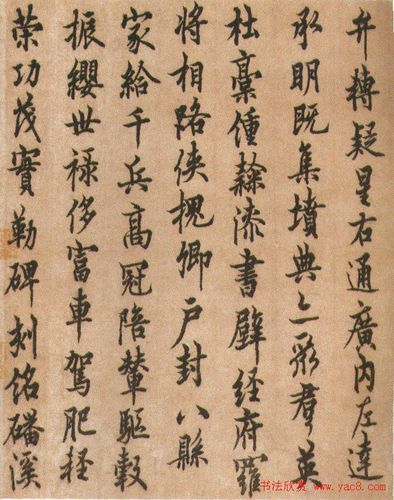 弁轉疑星右通廣内左達
承明既集墳典亦聚羣英
杜稾鍾隸漆書壁経府羅
將相路侠槐卿户封八縣
家給千兵高冠陪輦驅轂
振纓世禄侈富車駕肥軽
榮功茂實勒碑刻銘磻溪
书法欣赏 www.yac8.com